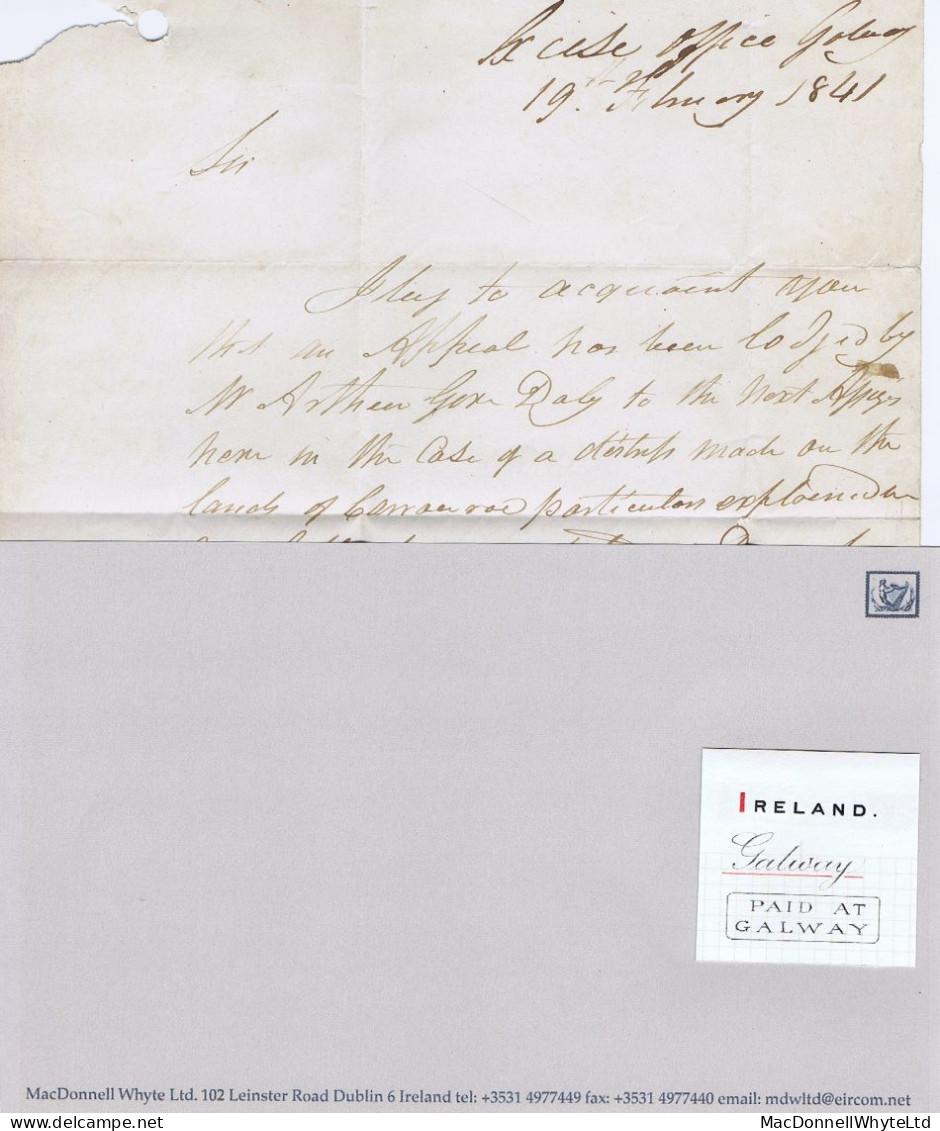 Excise office Galway
19th February 1841
Sir
I beg to acquaint you
that an Appeal has been lodged by
Mr Arthur Gore Daly to the Next Assizes
here in the Case of a distress made on the
lands of particulars explained in
IRELAND.
Galway
PAID AT
GALWAY
MacDonnell Whyte Ltd. 102 Leinster Road Dublin 6 Ireland tel: +3531 4977449 fax: +3531 4977440 email: mdwltd@eircom.net
delcampe.net
MacDonnellWhyteLtd